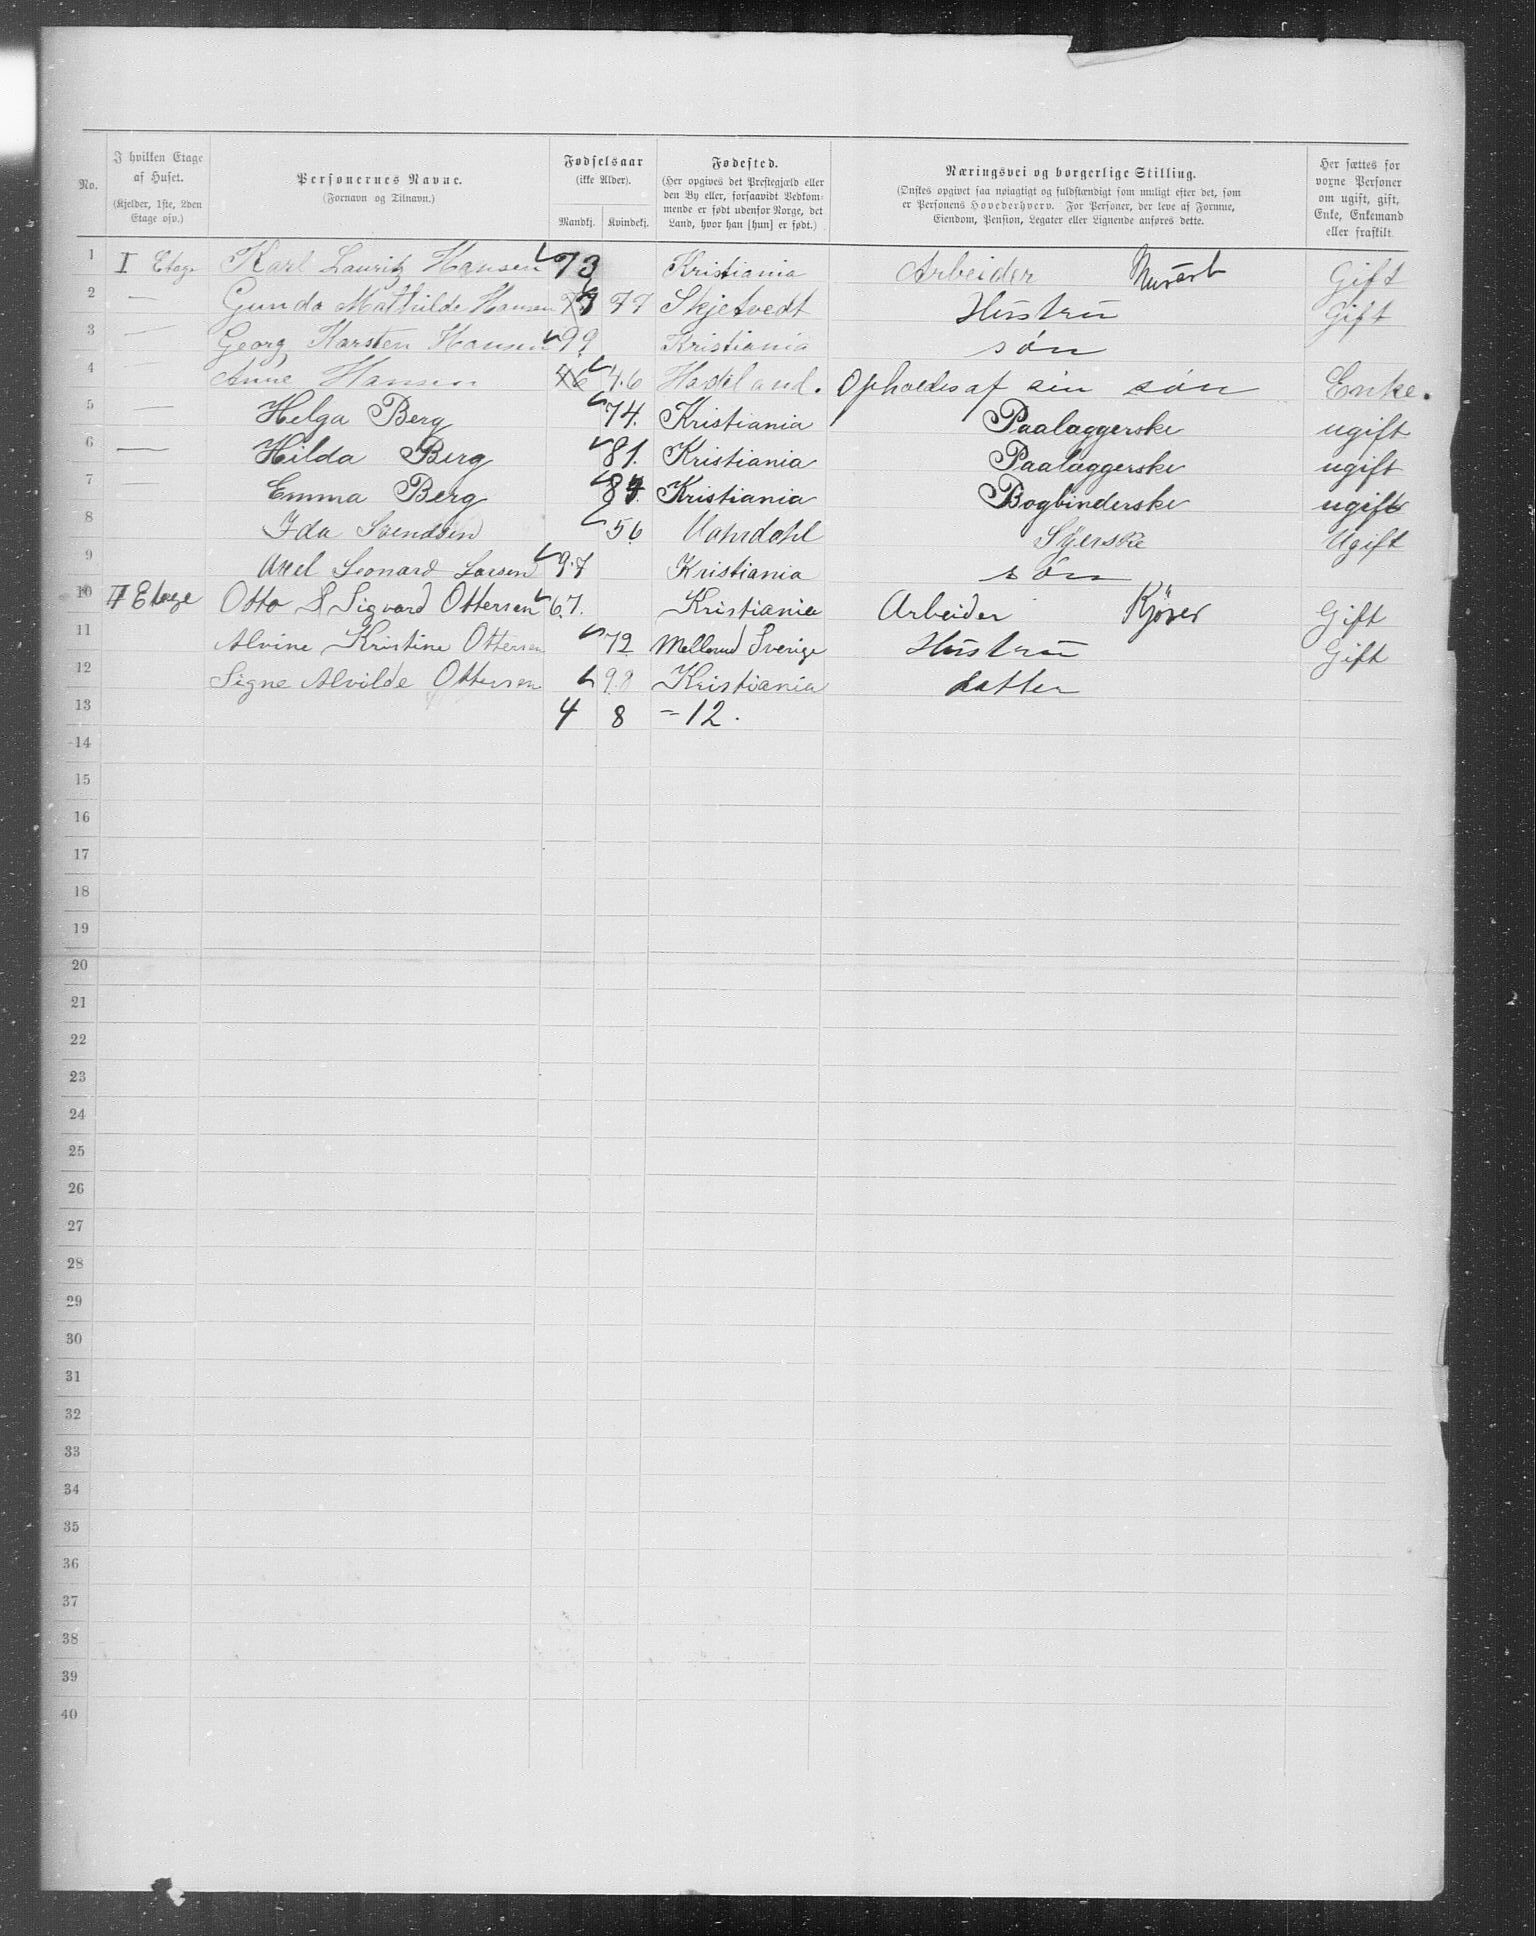 No. | I hvilken Etage af Huset. (Kjelder, 1ste, 2den Etage osv.) | Personernes Navne. (Fornavn og Tilnavn.) | Fødselsaar (ikke Alder). Mandkj. | Kvindekj. | Fødested. (Her opgives det Prestegjæld eller den By eller, forsaavidt Vedkommende er født udenfor Norge, det Land, hvor han [hun] er født.) | Næringsvei og borgerlige Stilling. (Ønskes opgivet saa nøiagtigt og fuldstændigt som muligt efter det, som er Personens Hovederhverv. For Personer, der leve af Formue, Eiendom, Pension, Legater eller Lignende anføres dette. | Her sættes for voxne Personer om ugift, gift, Enke, Enkemand eller fraskilt.
1 I Etage Karl Lauritz Hansen 73 Kristiania Arbeider Gift
2 — Gunda Mathilde Hansen 77 Skjetvedt Hustru Gift
3 — Georg Karsten Hansen 99 Kristiania søn
4 — Anne Hansen 46 46 Hadeland. Opholdes af sin søn Enke.
5 — Helga Berg 74. Kristiania Paalæggerske ugift
6 — Hilda Berg 81. Kristiania Paalæggerske ugift
7 — Emma Berg Kristiania Bogbinderske ugift
8 Ida Svendsen 56 Ugift
9 Axel Leonard Larsen 97 Kristiania søn
10 II Etage Otto S Sigvard Ottersen 67. Kristiania Arbeider Gift
11 Alvine Kristine Ottersen 72 Mellerud Sverige Hustru Gift
12 Signe Alvilde Ottersen 98 Kristiania datter
13 4 8 = 12.
14
15
16
17
18
19
20
21
22
23
24
25
26
27
28
29
30
31
32
33
34
35
36
37
38
39
40